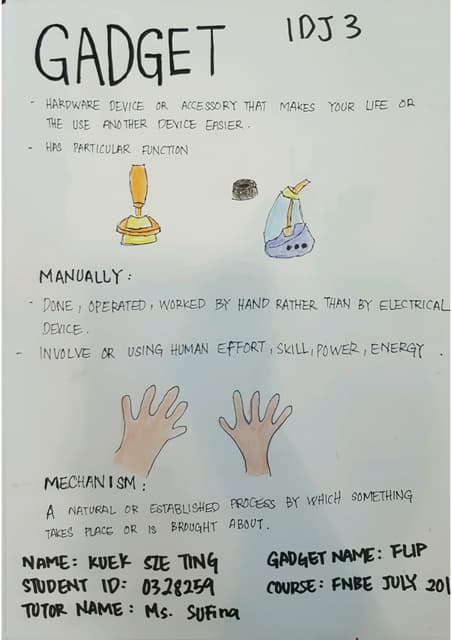 GADGET
IDJ 3
- HARDWARE DEVICE OR ACCESSORY THAT MAKES YOUR LIFE OR
THE USE ANOTHER DEVICE EASIER.
- HAS PARTICULAR FUNCTION
MANUALLY:
- DONE, OPERATED, WORKED BY HAND RATHER THAN BY ELECTRICAL
DEVICE.
- INVOLVE OR USING HUMAN EFFORT, SKILL, POWER, ENERGY.
MECHANISM:
A NATURAL OR ESTABLISHED PROCESS BY WHICH SOMETHING
TAKES PLACE OR IS BROUGHT ABOUT.
NAME: KUEK SZE TING
STUDENT ID: 0328259
TUTOR NAME: Ms. SUFina
GADGET NAME: FLIP
COURSE: FNBE JULY 201